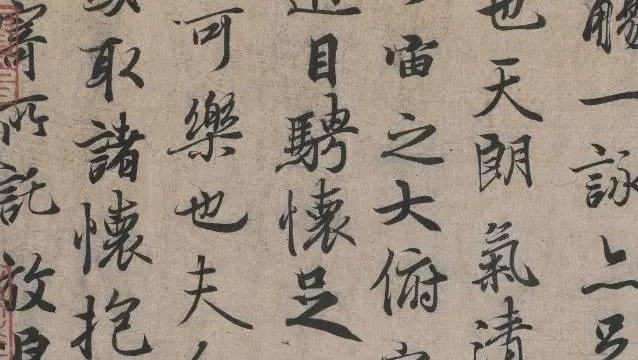 觴一詠亦足
也天朗氣清
宙之大俯
遊目騁懷足
可樂也夫人
或取諸懷抱
寄所託放浪